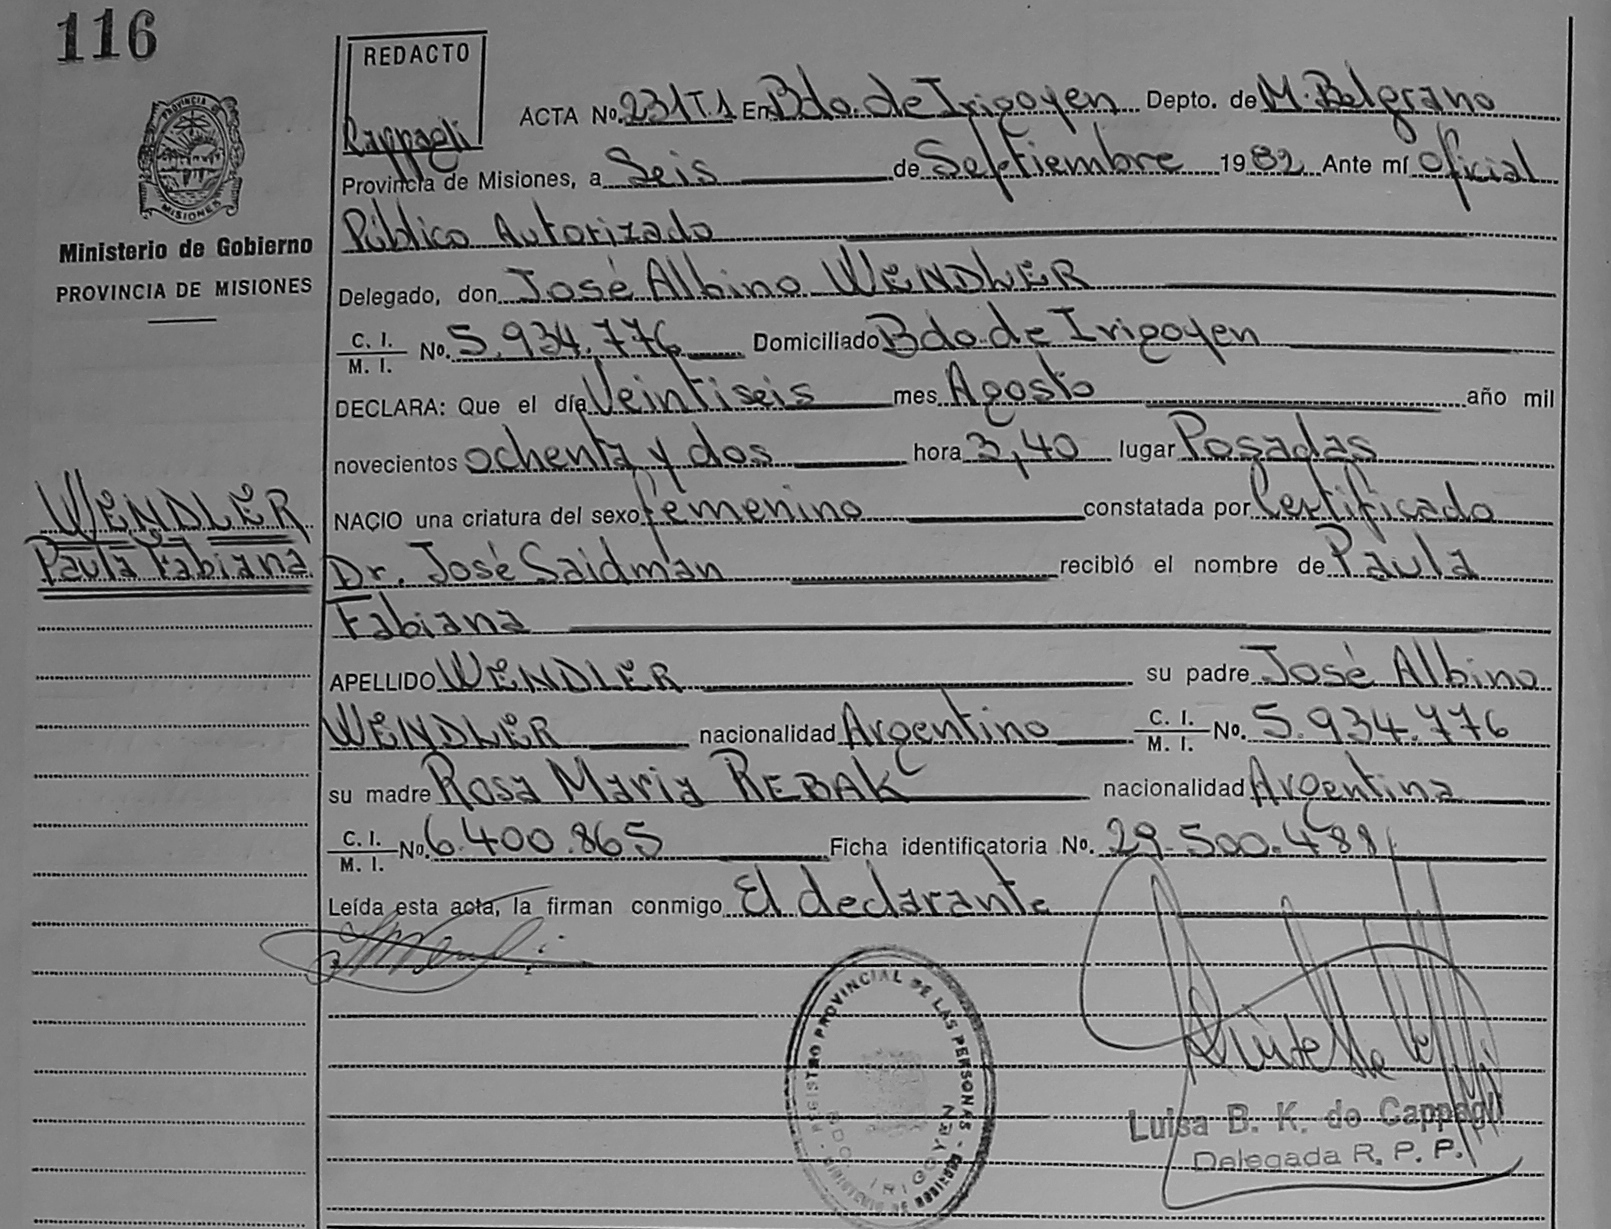 116
REDACTO
Cappagli
PROVINCIA DE
MISIONES
Ministerio de Gobierno
PROVINCIA DE MISIONES
ACTA No. 231T.1 En Bdo. de Irigoyen Depto. de M. Belgrano
Provincia de Misiones, a Seis de Septiembre 1982 Ante mí Oficial
Público Autorizado
Delegado, don José Albino WENDLER
C. I. / M. I. No. 5.934.776 Domiciliado Bdo. de Irigoyen
DECLARA: Que el día Veintiseis mes Agosto año mil
novecientos ochenta y dos hora 3,40 lugar Posadas
WENDLER
Paula Fabiana
NACIO una criatura del sexo femenino constatada por Certificado
Dr. José Saidman recibió el nombre de Paula
Fabiana
APELLIDO WENDLER su padre José Albino
WENDLER nacionalidad Argentino C. I. / M. I. No. 5.934.776
su madre Rosa Maria REBAK nacionalidad Argentina
C. I. / M. I. No. 6.400.865 Ficha identificatoria No. 29.500.481
Leída esta acta, la firman conmigo El declarante
REGISTRO PROVINCIAL DE LAS PERSONAS
BDO. IRIGOYEN
Luisa B. K. de Cappagli
Delegada R. P. P.